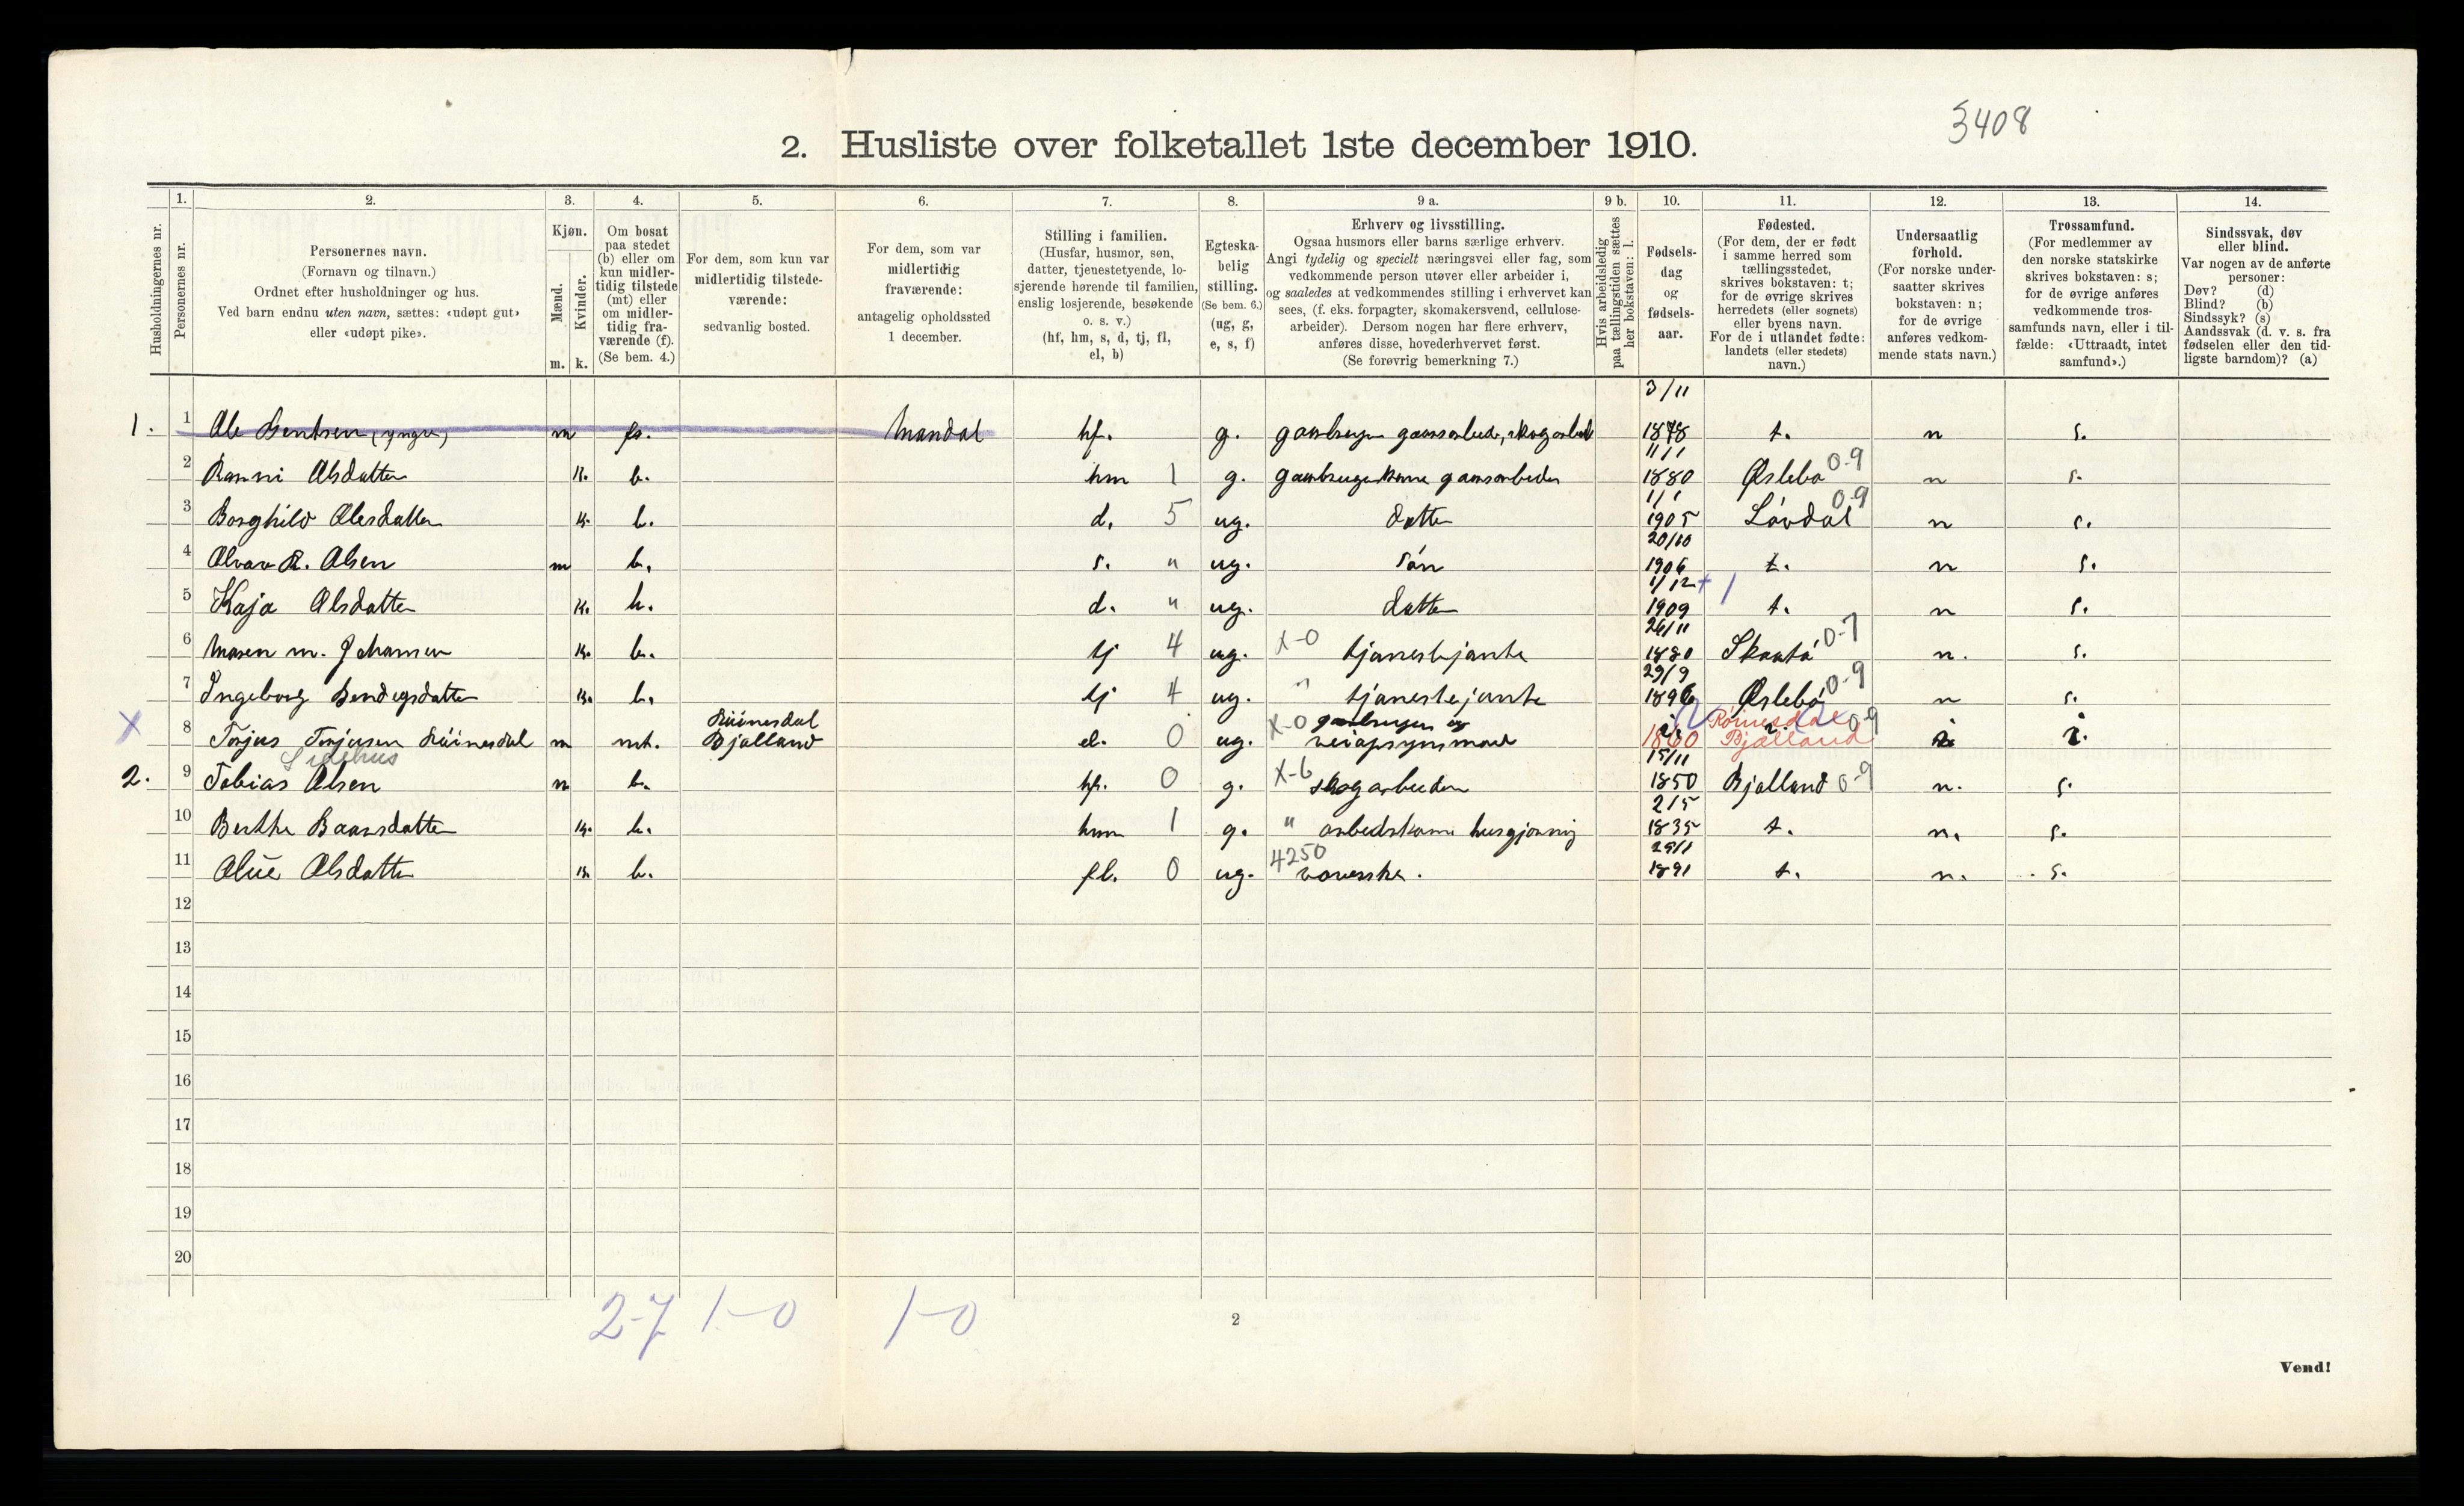 3408
2. Husliste over folketallet 1ste december 1910.
Husholdningernes nr.
1. Personernes nr.
2. Personernes navn.
(Fornavn og tilnavn.)
Ordnet efter husholdninger og hus.
Ved barn endnu uten navn, sættes: «udøpt gut»
eller «udøpt pike».
3. Kjøn.
Mænd. m.
Kvinder. k.
4. Om bosat
paa stedet
(b) eller om
kun midler-
tidig tilstede
(mt) eller
om midler-
tidig fra-
værende (f).
(Se bem. 4.)
5. For dem, som kun var
midlertidig tilstede-
værende:
sedvanlig bosted.
6. For dem, som var
midlertidig
fraværende:
antagelig opholdssted
1 december.
7. Stilling i familien.
(Husfar, husmor, søn,
datter, tjenestetyende, lo-
sjerende hørende til familien,
enslig losjerende, besøkende
o. s. v.)
(hf, hm, s, d, tj, fl,
el, b)
8. Egteska-
belig
stilling.
(Se bem. 6.)
(ug, g,
e, s, f)
9 a. Erhverv og livsstilling.
Ogsaa husmors eller barns særlige erhverv.
Angi tydelig og specielt næringsvei eller fag, som
vedkommende person utøver eller arbeider i,
og saaledes at vedkommendes stilling i erhvervet kan
sees, (f. eks. forpagter, skomakersvend, cellulose-
arbeider). Dersom nogen har flere erhverv,
anføres disse, hovederhvervet først.
(Se forøvrig bemerkning 7.)
9 b. Hvis arbeidsledig
paa tællingstiden sættes
her bokstaven: l.
10. Fødsels-
dag
og
fødsels-
aar.
11. Fødested.
(For dem, der er født
i samme herred som
tællingsstedet,
skrives bokstaven: t;
for de øvrige skrives
herredets (eller sognets)
eller byens navn.
For de i utlandet fødte:
landets (eller stedets)
navn.)
12. Undersaatlig
forhold.
(For norske under-
saatter skrives
bokstaven: n;
for de øvrige
anføres vedkom-
mende stats navn.)
13. Trossamfund.
(For medlemmer av
den norske statskirke
skrives bokstaven: s;
for de øvrige anføres
vedkommende tros-
samfunds navn, eller i til-
fælde: «Uttraadt, intet
samfund».)
14. Sindssvak, døv
eller blind.
Var nogen av de anførte
personer:
Døv? (d)
Blind? (b)
Sindssyk? (s)
Aandssvak (d. v. s. fra
fødselen eller den tid-
ligste barndom)? (a)
1. 1 Ole Bentsen (yngre) m Mandal hf. g. 3/11 1878 t. n s.
2 Ranni Olsdatter k. b. hm 1 g. 11/1 1880 Øslebø 0-9 n s.
3 Borghild Olesdatter k. b. d. 5 ug. datter 1/1 1905 Løvdal 0-9 n s.
4 R. Olsen m b. s. " ug. søn 20/10 1906 t. n s.
5 Kaja Olsdatter k. b. d. " ug. datter 1/12 1909 t. n s.
6 Maren m. k. b. tj 4 ug. x-0 tjenestejente 26/11 1880 Skaatø 0-7 n. s.
7 Ingeborg k. b. tj 4 ug. " tjenestejente 29/9 1896 Øslebø 0-9 n s.
X 8 Torjus Torjusen m mt. Bjelland el. 0 ug. x-0 1860 Bjelland 0-9
2. 9 Tobias Olsen m b. hf. 0 g. x-6 skogarbeider 15/11 1850 Bjelland 0-9 n. s.
10 Berthe Baardsdatter k. b. hm 1 g. " arbeidskone husgjerning 2/5 1835 t. n. s.
11 Olsdatter k b. fl. 0 ug. 4250 væverske. 1891 t. n. s.
12
13
14
15
16
17
18
19
20
2-7 1-0 1-0
2
Vend!